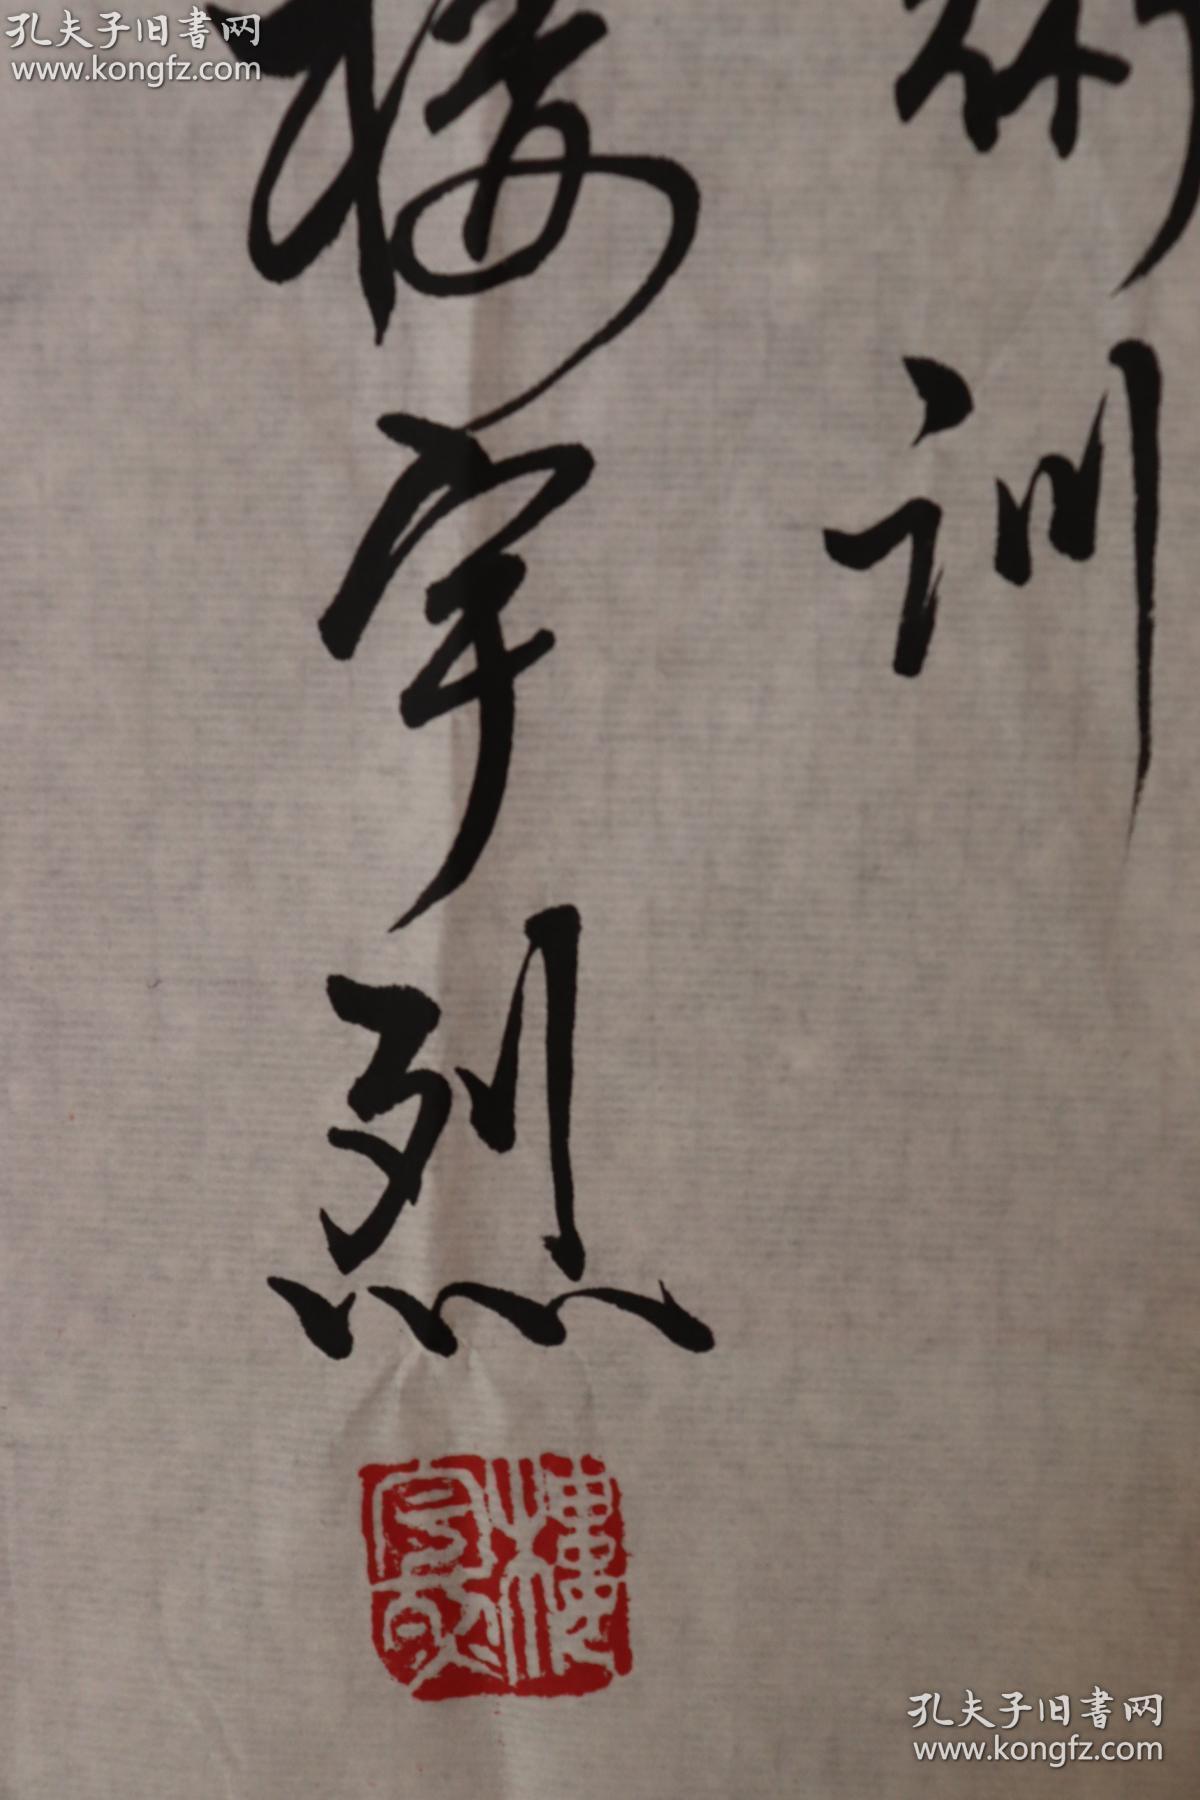 孔夫子旧書网
www.kongfz.com
訓
楼宇烈
孔夫子旧書网
www.kongfz.com